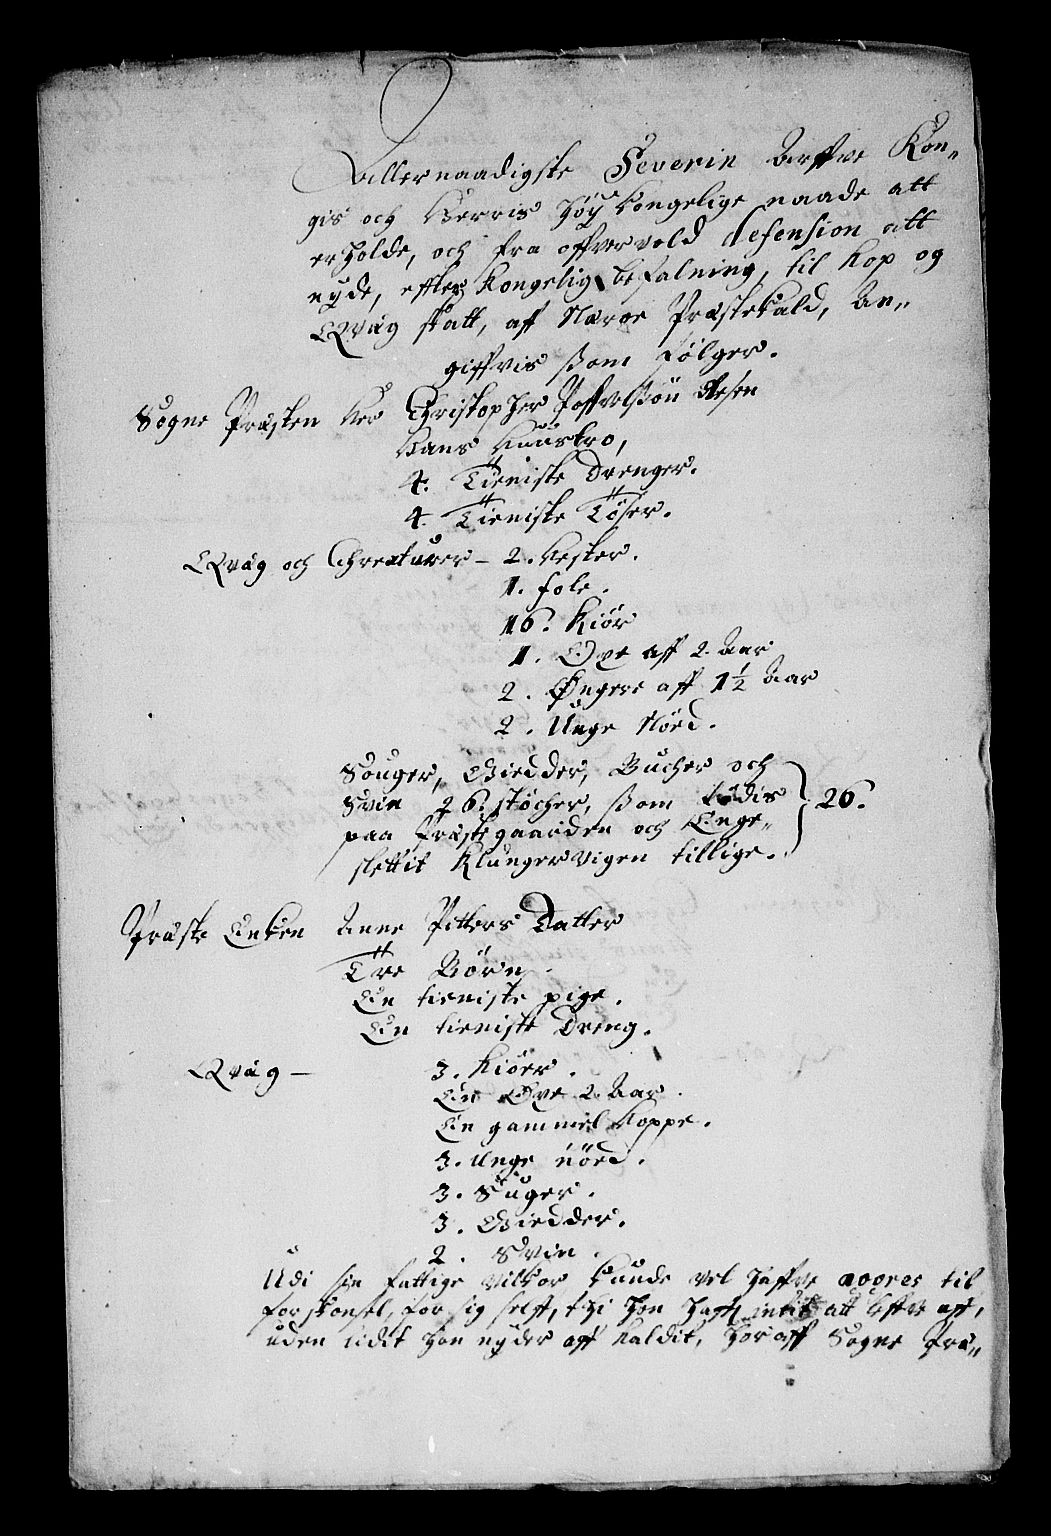 Allernaadigste Severin Arffve Kon-
gis och Herris höy kongelige naade att
erholde, och fra offvervold defension att
nyde, effter Kongelig befalning, til kop og
Qvæg skatt, aff Næröe Præstekald, An-
giffvis ßom fölger.
Sogne Præsten Her Christopher Poffvelßön
Hans Huustro,
4. Tieniste Drenger.
4. Tieniste Töser.
Qvæg och Chreaturer - 2. Hester.
1. fole.
16. Kiör
1. Oxe aff 2. Aar
2. Öngere aff 1½ Aar
2. Unge Nöed.
Souger, Giedder, Bucher och
Svin 26. støcher, ßom födis
paa Præstegaarden och Enge-
slettit Klungervigen tillige. } 26.
Præste Enken Anne Pitters Datter
Tre Börn.
En tieniste pige.
En tieniste Dreng.
Qvæg - 3. Kiöer.
En Oxe 2. Aar.
En gammel hoppe.
3. Unge nöed.
3. Suger.
3. Giedder.
2. Svin.
Udi sin fattige vilkor kunde vel haffve til
forskonsel, for sig self, thi hon haffr intit att leffve aff,
uden lidit hon nyder aff kaldit, hor aff Sogne Præ-